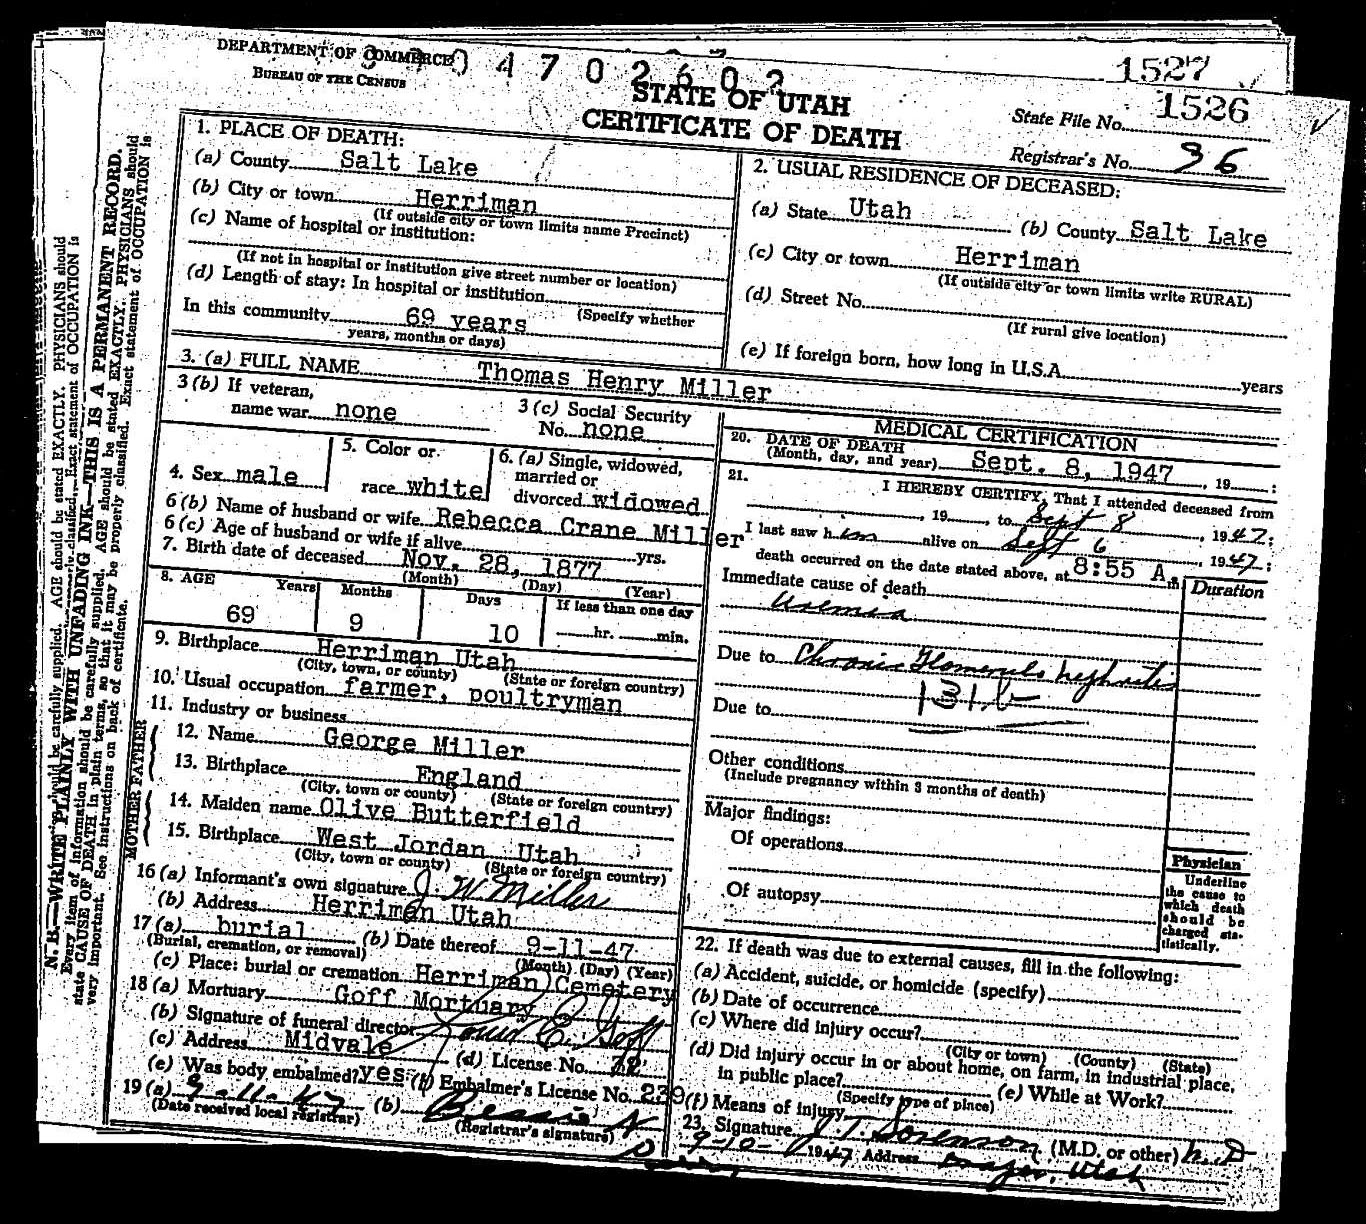 DEPARTMENT OF COMMERCE
BUREAU OF THE CENSUS
4702602
1527
STATE OF UTAH
CERTIFICATE OF DEATH
State File No. 1526
Registrar's No. 36
1. PLACE OF DEATH:
(a) County Salt Lake
(b) City or town Herriman
(If outside city or town limits name Precinct)
(c) Name of hospital or institution:
(If not in hospital or institution give street number or location)
(d) Length of stay: In hospital or institution
(Specify whether
In this community 69 years
years, months or days)
2. USUAL RESIDENCE OF DECEASED:
(a) State Utah (b) County Salt Lake
(c) City or town Herriman
(If outside city or town limits write RURAL)
(d) Street No.
(If rural give location)
(e) If foreign born, how long in U.S.A. years
3. (a) FULL NAME Thomas Henry Miller
3 (b) If veteran, name war none
3 (c) Social Security No. none
4. Sex male
5. Color or race white
6. (a) Single, widowed, married or divorced widowed
6 (b) Name of husband or wife Rebecca Crane Miller
6 (c) Age of husband or wife if alive yrs.
7. Birth date of deceased Nov. 28, 1877
(Month) (Day) (Year)
8. AGE Years Months Days If less than one day
69 9 10 hr. min.
9. Birthplace Herriman Utah
(City, town, or county) (State or foreign country)
10. Usual occupation farmer, poultryman
11. Industry or business
FATHER
12. Name George Miller
13. Birthplace England
(City, town or county) (State or foreign country)
MOTHER
14. Maiden name Olive Butterfield
15. Birthplace West Jordan Utah
(City, town or county) (State or foreign country)
16 (a) Informant's own signature J. W. Miller
(b) Address Herriman Utah
17 (a) burial (b) Date thereof 9-11-47
(Burial, cremation, or removal) (Month) (Day) (Year)
(c) Place: burial or cremation Herriman Cemetery
18 (a) Mortuary Goff Mortuary
(b) Signature of funeral director Louis E. Goff
(c) Address Midvale (d) License No.
(e) Was body embalmed? yes (f) Embalmer's License No. 239
19 (a) 9-11-47 (b) Bessie N
(Date received local registrar) (Registrar's signature)
MEDICAL CERTIFICATION
20. DATE OF DEATH
(Month, day, and year) Sept. 8, 1947, 19 :
21. I HEREBY CERTIFY, That I attended deceased from
, 19 , to Sept 8, 1947;
I last saw him alive on Sept 6, 1947;
death occurred on the date stated above, at 8:55 A m
Immediate cause of death Duration
Uremia
Due to Chronic Glomerulo nephritis
131.b
Due to
Other conditions
(Include pregnancy within 3 months of death)
Major findings:
Of operations
Of autopsy
Physician
Underline
the cause to
which death
should be
charged sta-
tistically.
22. If death was due to external causes, fill in the following:
(a) Accident, suicide, or homicide (specify)
(b) Date of occurrence
(c) Where did injury occur?
(City or town) (County) (State)
(d) Did injury occur in or about home, on farm, in industrial place,
in public place? (e) While at Work?
(Specify type of place)
(f) Means of injury
23. Signature J. T. Sorenson (M.D. or other) M.D
9-10- 1947 Address Draper, Utah
N. B.—WRITE PLAINLY WITH UNFADING INK—THIS IS A PERMANENT RECORD.
Every item of information should be carefully supplied. AGE should be stated EXACTLY. PHYSICIANS should
state CAUSE OF DEATH in plain terms, so that it may be properly classified. Exact statement of OCCUPATION is
very important. See instructions on back of certificate.